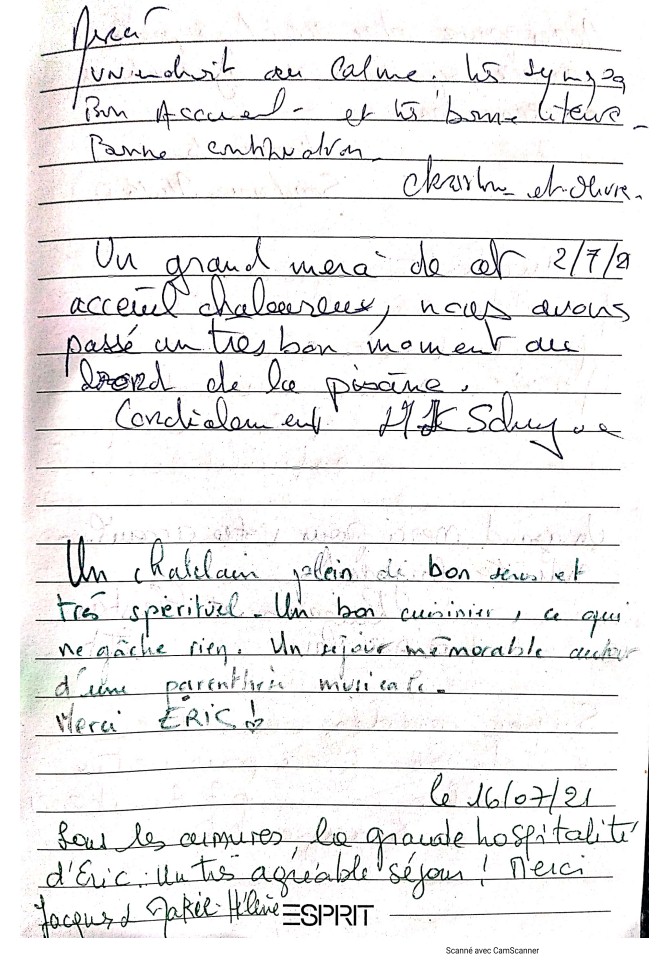 Merci
un endroit au calme. très sympa
Bon Accueil - et très bonne literie -
Bonne continuation -
et
Un grand merci de cet 2/7/21
acceuil chaleureux, nous avons
passé un tres bon moment au
bord de la piscine.
Cordialement
Un chatelain plein de bon sens et
très spérituel - Un bon cuisinier, ce qui
ne gâche rien. Un séjour mémorable autour
d'une parenthèse musicale -
Merci ERIC !
le 16/07/21
Sous les armures, la grande hospitalité
d'Eric. Un très agréable séjour ! Merci
Jacques & Marie-Hélène ESPRIT
Scanné avec CamScanner